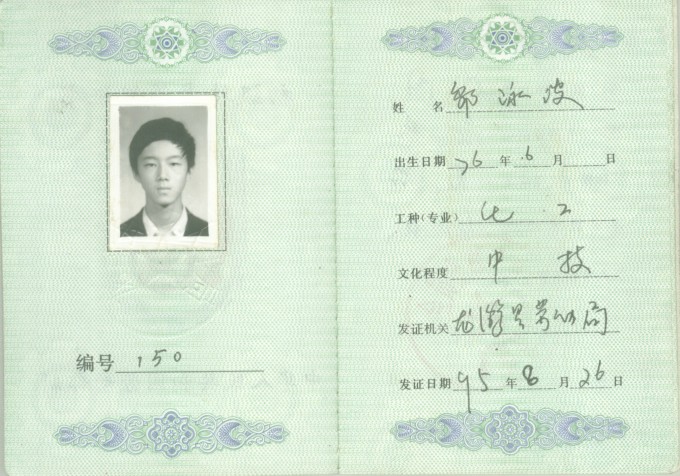 编号 150
姓名 邹泳波
出生日期 76年6月 日
工种(专业) 化工
文化程度 中技
发证机关 龙游县劳动局
发证日期 95年8月26日